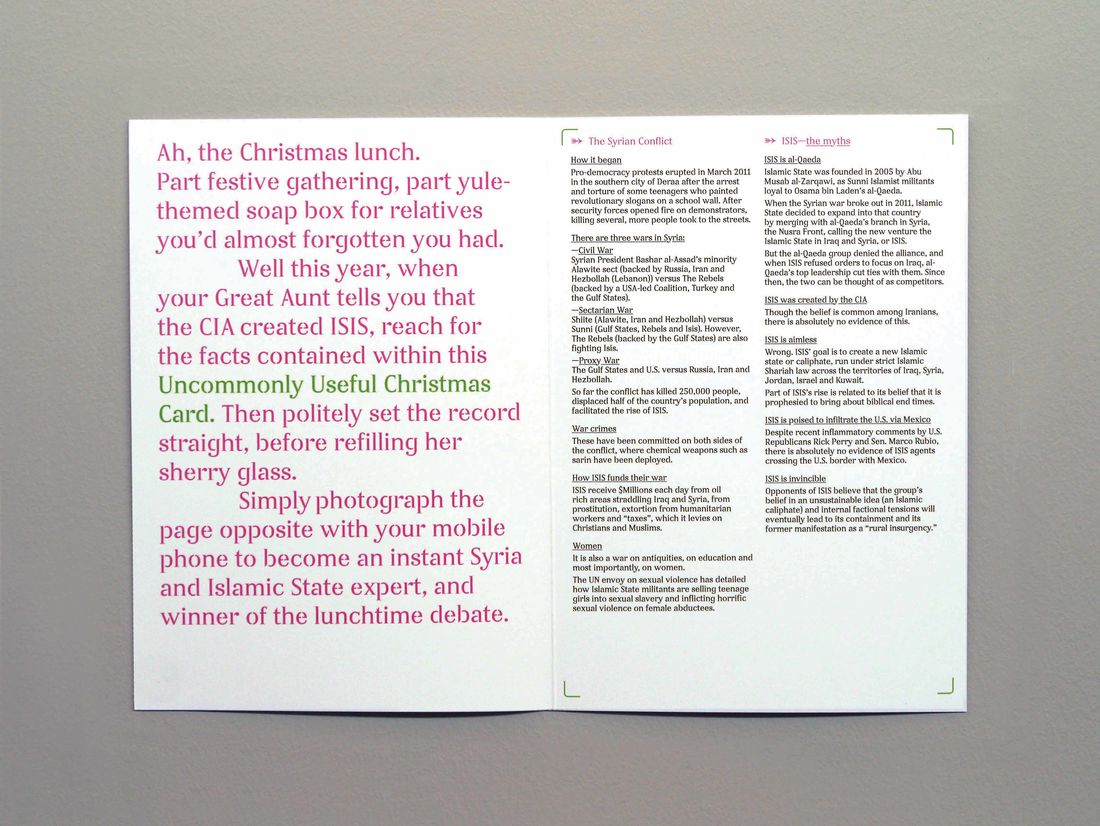 Ah, the Christmas lunch.
Part festive gathering, part yule-
themed soap box for relatives
you'd almost forgotten you had.
Well this year, when
your Great Aunt tells you that
the CIA created ISIS, reach for
the facts contained within this
Uncommonly Useful Christmas
Card. Then politely set the record
straight, before refilling her
sherry glass.
Simply photograph the
page opposite with your mobile
phone to become an instant Syria
and Islamic State expert, and
winner of the lunchtime debate.
The Syrian Conflict
How it began
Pro-democracy protests erupted in March 2011
in the southern city of Deraa after the arrest
and torture of some teenagers who painted
revolutionary slogans on a school wall. After
security forces opened fire on demonstrators,
killing several, more people took to the streets.
There are three wars in Syria:
—Civil War
Syrian President Bashar al-Assad's minority
Alawite sect (backed by Russia, Iran and
Hezbollah (Lebanon)) versus The Rebels
(backed by a USA-led Coalition, Turkey and
the Gulf States).
—Sectarian War
Shiite (Alawite, Iran and Hezbollah) versus
Sunni (Gulf States, Rebels and Isis). However,
The Rebels (backed by the Gulf States) are also
fighting Isis.
—Proxy War
The Gulf States and U.S. versus Russia, Iran and
Hezbollah.
So far the conflict has killed 250,000 people,
displaced half of the country's population, and
facilitated the rise of ISIS.
War crimes
These have been committed on both sides of
the conflict, where chemical weapons such as
sarin have been deployed.
How ISIS funds their war
ISIS receive $Millions each day from oil
rich areas straddling Iraq and Syria, from
prostitution, extortion from humanitarian
workers and "taxes", which it levies on
Christians and Muslims.
Women
It is also a war on antiquities, on education and
most importantly, on women.
The UN envoy on sexual violence has detailed
how Islamic State militants are selling teenage
girls into sexual slavery and inflicting horrific
sexual violence on female abductees.
ISIS—the myths
ISIS is al-Qaeda
Islamic State was founded in 2005 by Abu
Musab al-Zarqawi, as Sunni Islamist militants
loyal to Osama bin Laden's al-Qaeda.
When the Syrian war broke out in 2011, Islamic
State decided to expand into that country
by merging with al-Qaeda's branch in Syria,
the Nusra Front, calling the new venture the
Islamic State in Iraq and Syria, or ISIS.
But the al-Qaeda group denied the alliance, and
when ISIS refused orders to focus on Iraq, al-
Qaeda's top leadership cut ties with them. Since
then, the two can be thought of as competitors.
ISIS was created by the CIA
Though the belief is common among Iranians,
there is absolutely no evidence of this.
ISIS is aimless
Wrong. ISIS' goal is to create a new Islamic
state or caliphate, run under strict Islamic
Shariah law across the territories of Iraq, Syria,
Jordan, Israel and Kuwait.
Part of ISIS's rise is related to its belief that it is
prophesied to bring about biblical end times.
ISIS is poised to infiltrate the U.S. via Mexico
Despite recent inflammatory comments by U.S.
Republicans Rick Perry and Sen. Marco Rubio,
there is absolutely no evidence of ISIS agents
crossing the U.S. border with Mexico.
ISIS is invincible
Opponents of ISIS believe that the group's
belief in an unsustainable idea (an Islamic
caliphate) and internal factional tensions will
eventually lead to its containment and its
former manifestation as a "rural insurgency."